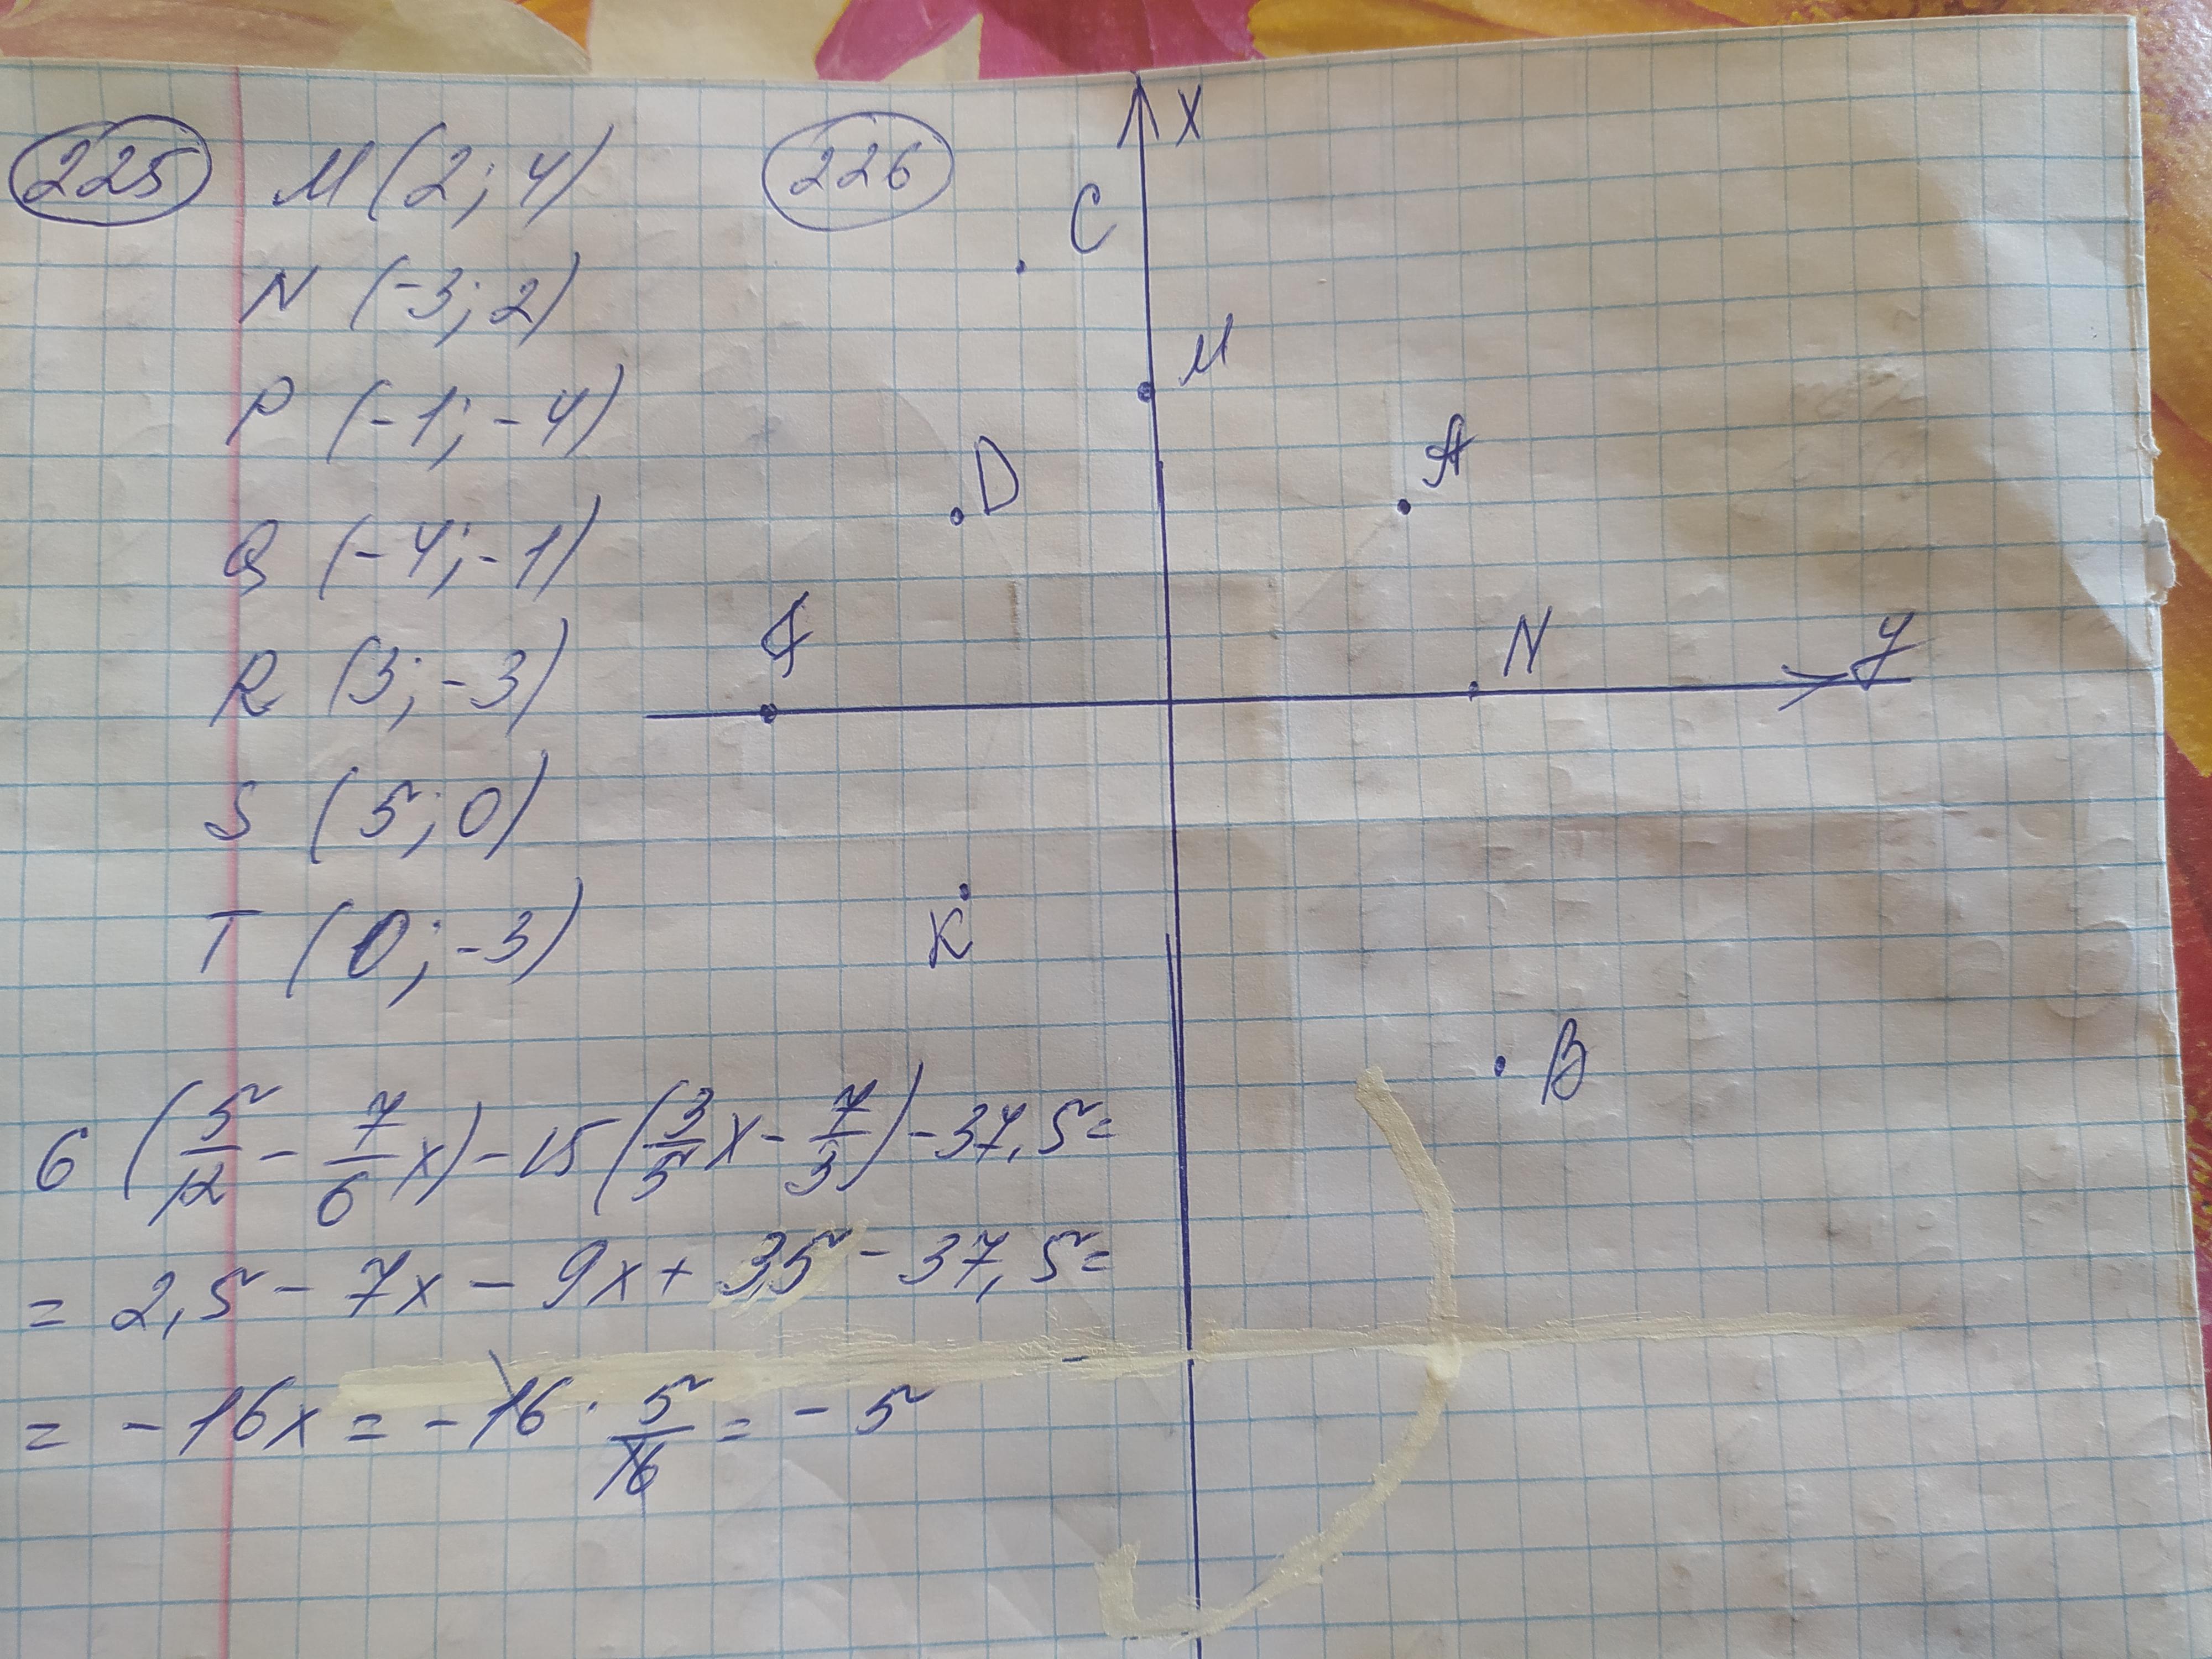 225
M (2; 4)
N (-3; 2)
P (-1; -4)
Q (-4; -1)
R (3; -3)
S (5; 0)
T (0; -3)
226
X
C
M
D
A
N
y
K
B
6 (5/12 - 7/6 x) - 15 (3/5 x - 7/3) - 37,5 =
= 2,5 - 7x - 9x + 35 - 37,5 =
= - 16x = - 16 · 5/16 = - 5